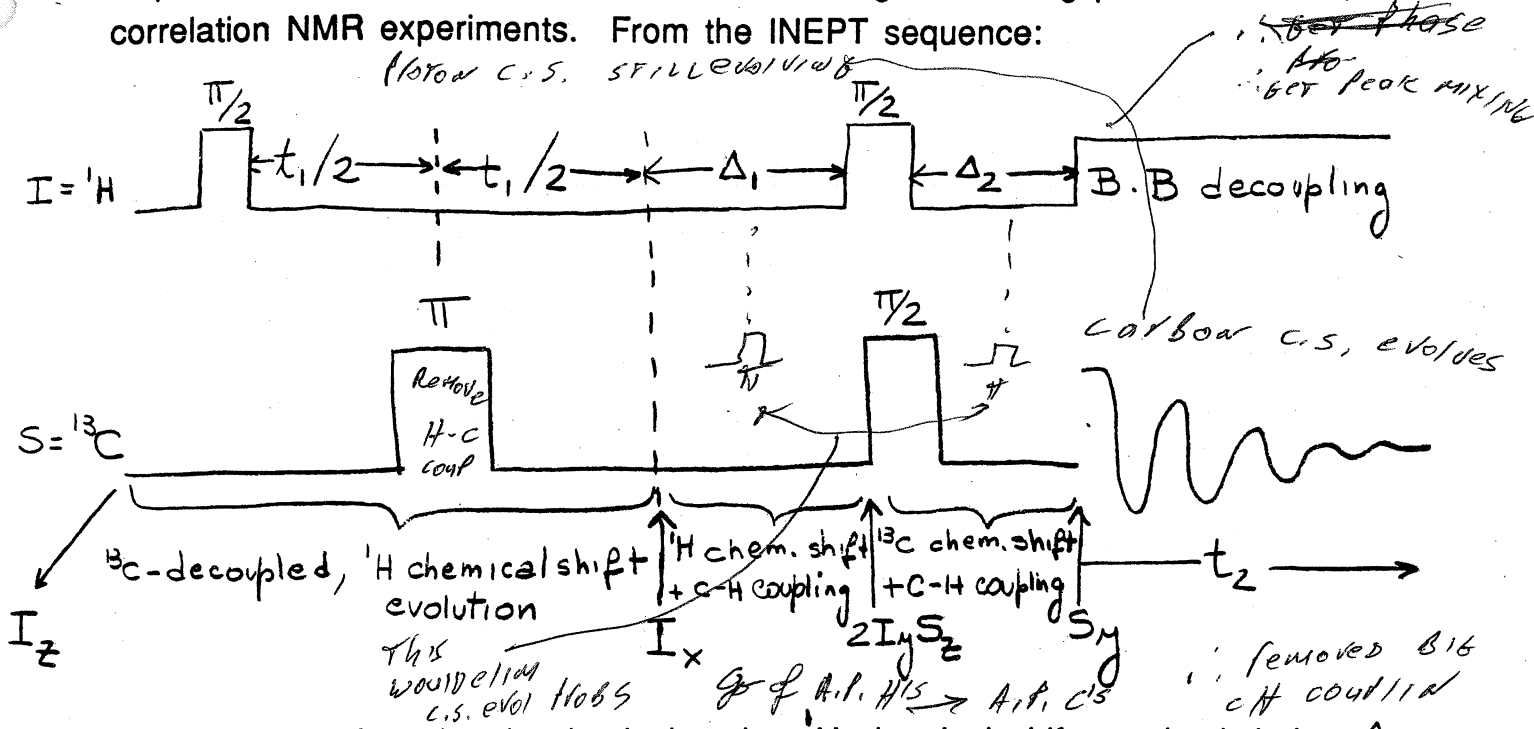 correlation NMR experiments. From the INEPT sequence:
Proton c.s. still evolving
∴ Get Phase
∴ Get Peak mixing
π/2
π/2
I = ¹H
t₁/2
t₁/2
Δ₁
Δ₂
B.B decoupling
π
π/2
Carbon c.s. evolves
Remove
H-C
coup
S = ¹³C
π
π
¹³C-decoupled, ¹H chemical shift
evolution
¹H chem. shift
+ C-H coupling
¹³C chem. shift
+ C-H coupling
t₂
I_z
I_x
2I_yS_z
S_y
This
would elim
c.s. evol probs
A.P. H's → A.P. C's
∴ removed BIG
CH couplin